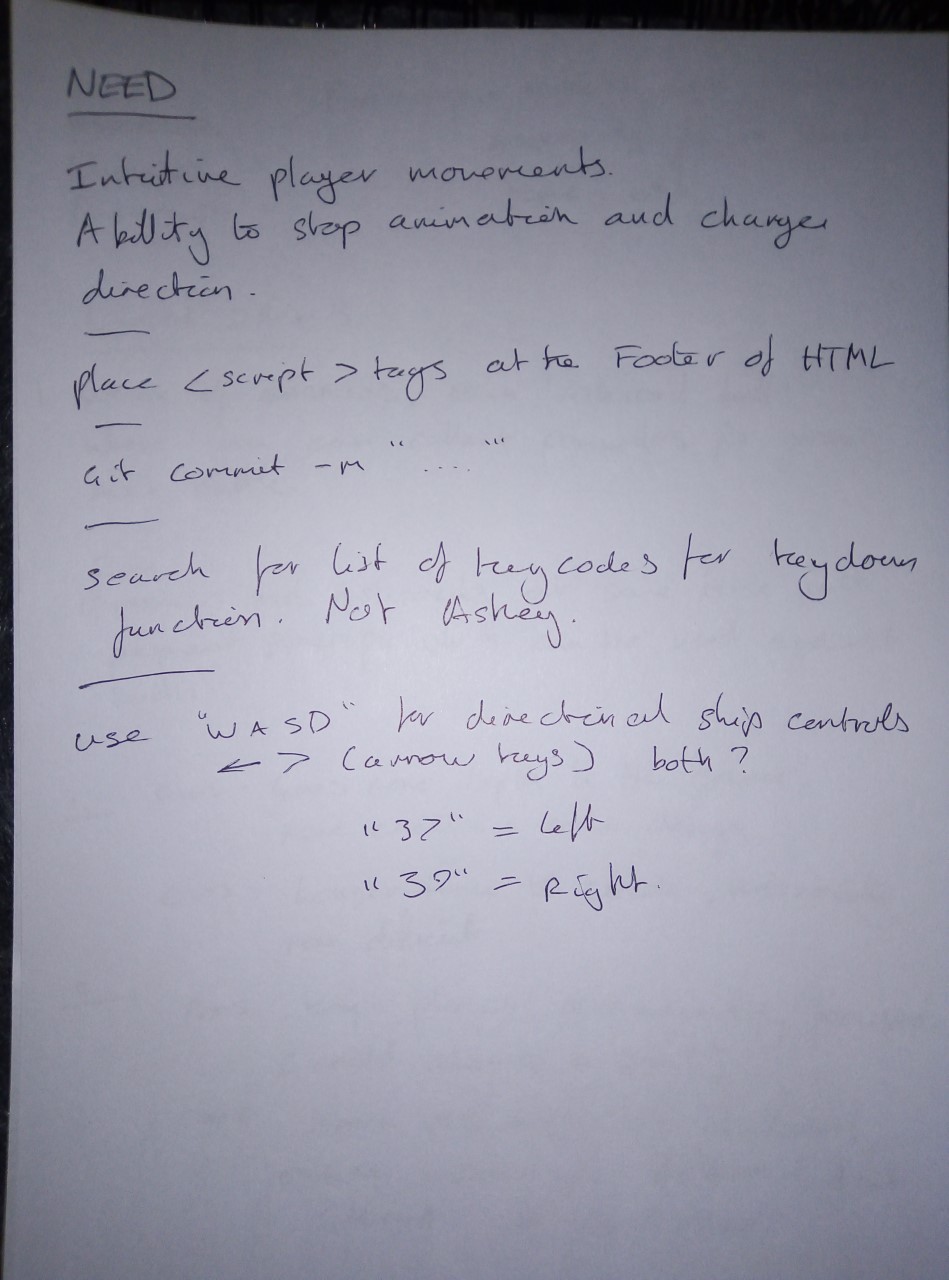 NEED
Intuitive player movements.
Ability to stop animation and change
direction.
place <script> tags at the Footer of HTML
Git commit -m " .... "
search for list of keycodes for keydown
function. Not Askey.
use "WASD" for directional ship controls
← > (arrow keys) both?
"37" = left
"39" = Right.